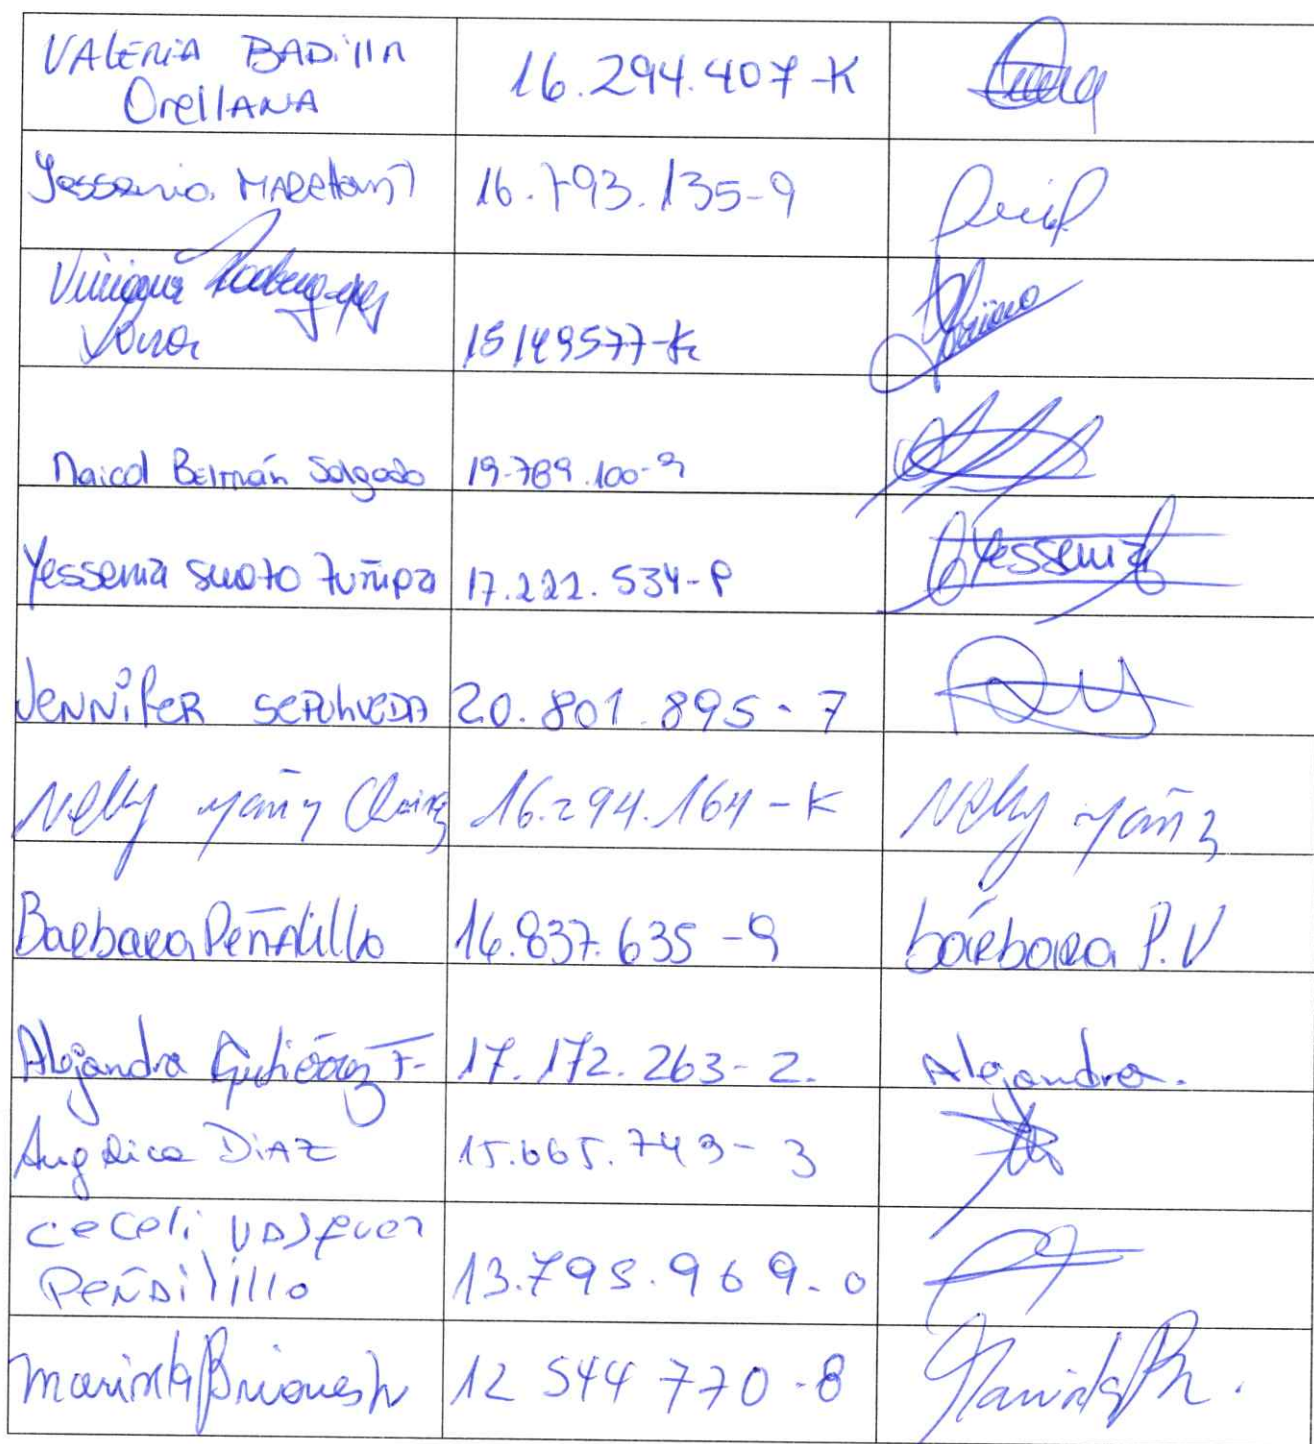 VALERIA BADillA 16.294.407-K
OrellANA
Yessenia MARchant 16.793.135-9
Viviana Rodriguez 15149577-K
Naicol Belmán Salgado 19.789.100-9
Yessenia Suoto Zuñipa 17.222.534-P Yessenia
JENNifeR SEPulveDA 20.801.895-7
Nelly Yañez 16.294.164-K Nelly Yañez
Barbara Peñalillo 16.837.635-9 bárbara P.V
Alejandra Gutiérrez F. 17.172.263-2. Alejandra.
Angelica DiAZ 15.665.743-3
CeCeli VASquez 13.795.969-0
PeÑAilillo
Marinela Briones 12 544 770-8